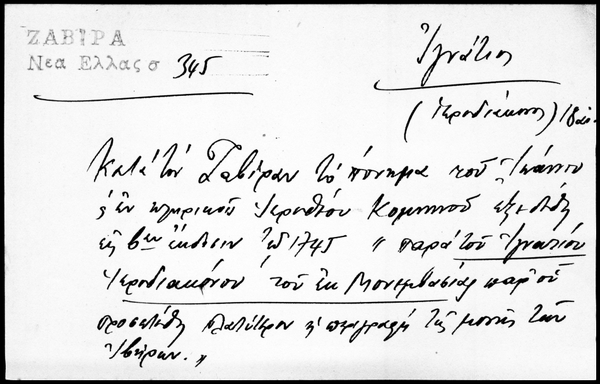 ΖΑΒΙΡΑ
Νεα Ελλας σ 345
Ἰγνάτιος
(Ἱεροδιάκονος) 18 αἰ.
Κατὰ τὸν Ζαβίραν τὸ πόνημα τοῦ Ἰωάννου
Ἱεροθέου Κομνηνοῦ ἐξεδόθη
εἰς βαν ἔκδοσιν τῷ 1745 " παρὰ τοῦ Ἰγνατίου
Ἱεροδιακόνου τοῦ ἐκ Μονεμβασίας παρ' οὗ
προσετέθη πλατύτερον ἡ περιγραφὴ τῆς μονῆς τῶν
Ἰβήρων. "